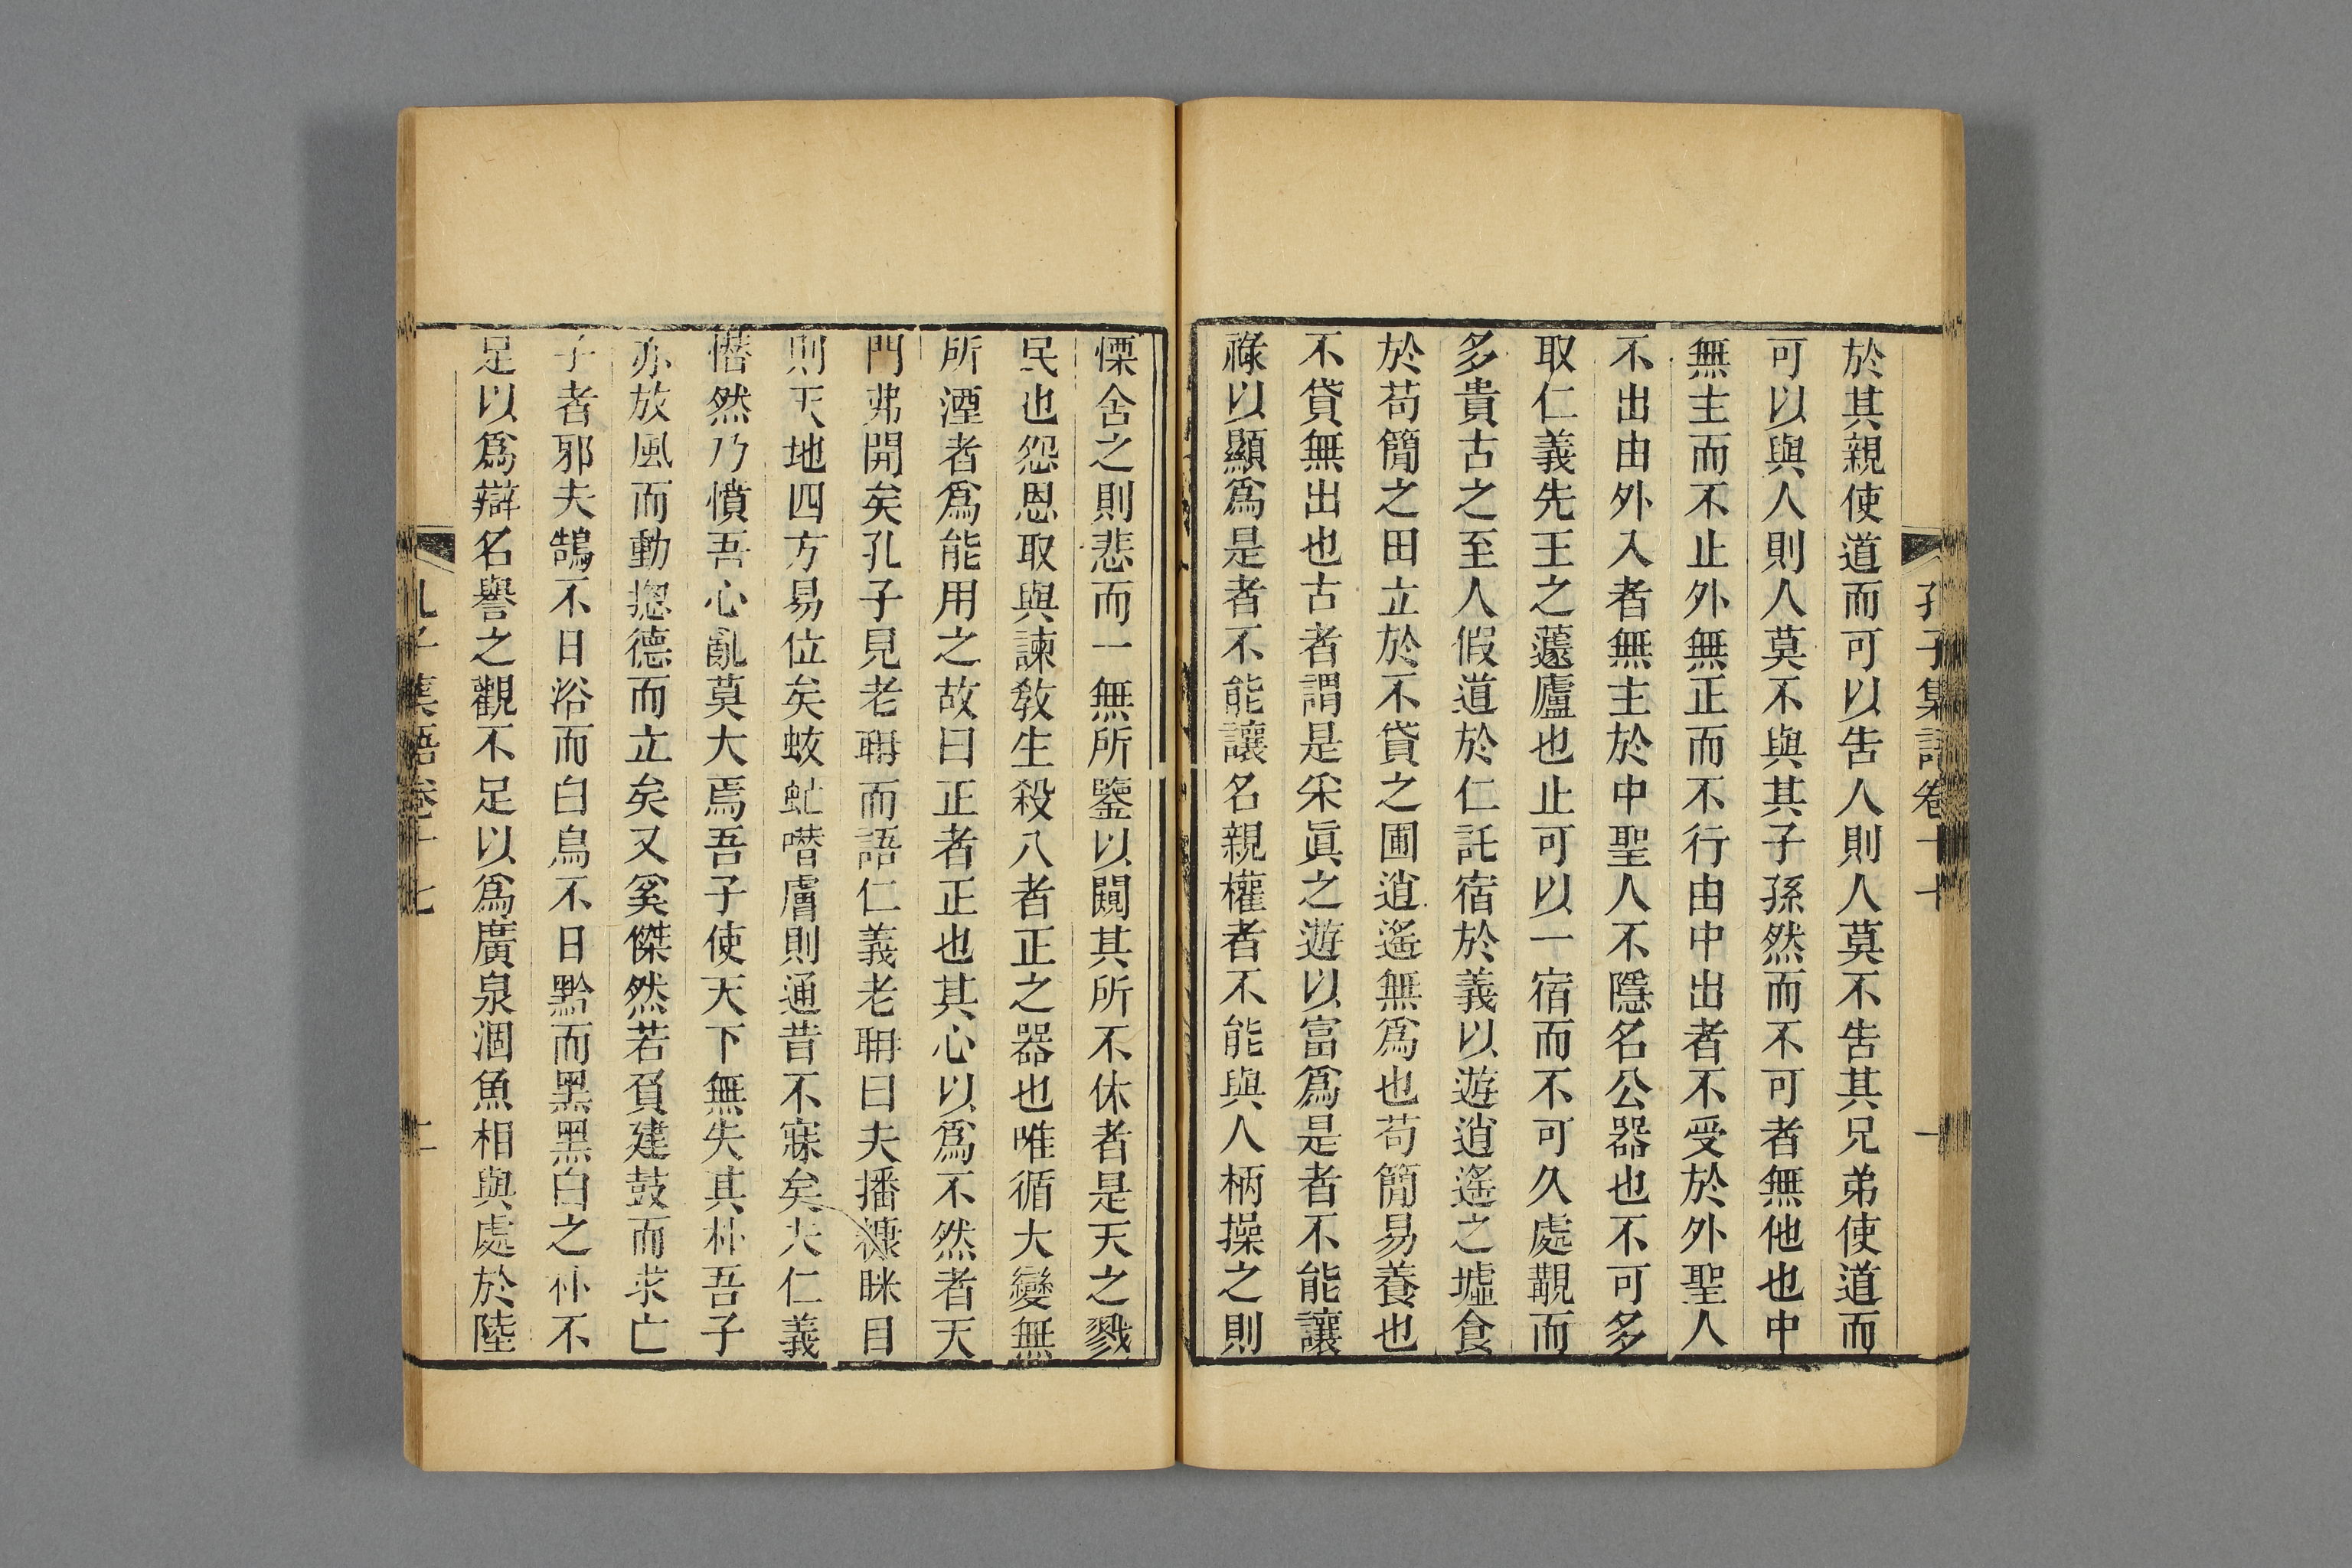 孔子集語卷十七
一
於其親使道而可以告人則人莫不告其兄弟使道而
可以與人則人莫不與其子孫然而不可者無他也中
無主而不止外無正而不行由中出者不受於外聖人
不出由外入者無主於中聖人不隱名公器也不可多
取仁義先王之蘧廬也止可以一宿而不可久處覯而
多貴古之至人假道於仁託宿於義以遊逍遙之墟食
於苟簡之田立於不貸之圃逍遙無爲也苟簡易養也
不貸無出也古者謂是采眞之遊以富爲是者不能讓
祿以顯爲是者不能讓名親權者不能與人柄操之則
慄舍之則悲而一無所鑒以闚其所不休者是天之戮
民也怨恩取與諫敎生殺八者正之器也唯循大變無
所湮者爲能用之故曰正者正也其心以爲不然者天
門弗開矣孔子見老聃而語仁義老聃曰夫播糠眯目
則天地四方易位矣蚊虻噆膚則通昔不寐矣夫仁義
憯然乃憤吾心亂莫大焉吾子使天下無失其朴吾子
亦放風而動揔德而立矣又奚傑然若負建鼓而求亡
子者邪夫鵠不日浴而白烏不日黔而黑黑白之朴不
足以爲辯名譽之觀不足以爲廣泉涸魚相與處於陸
孔子集語卷十七
二